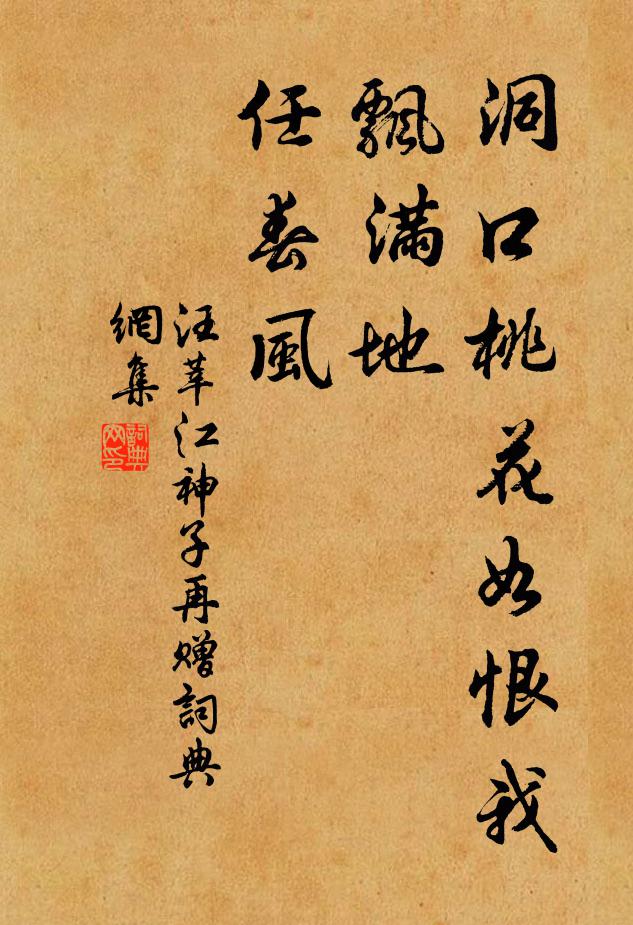 洞口桃花如恨我
飄滿地
任春風
汪莘江神子再贈詞典
網集
詞典
网印